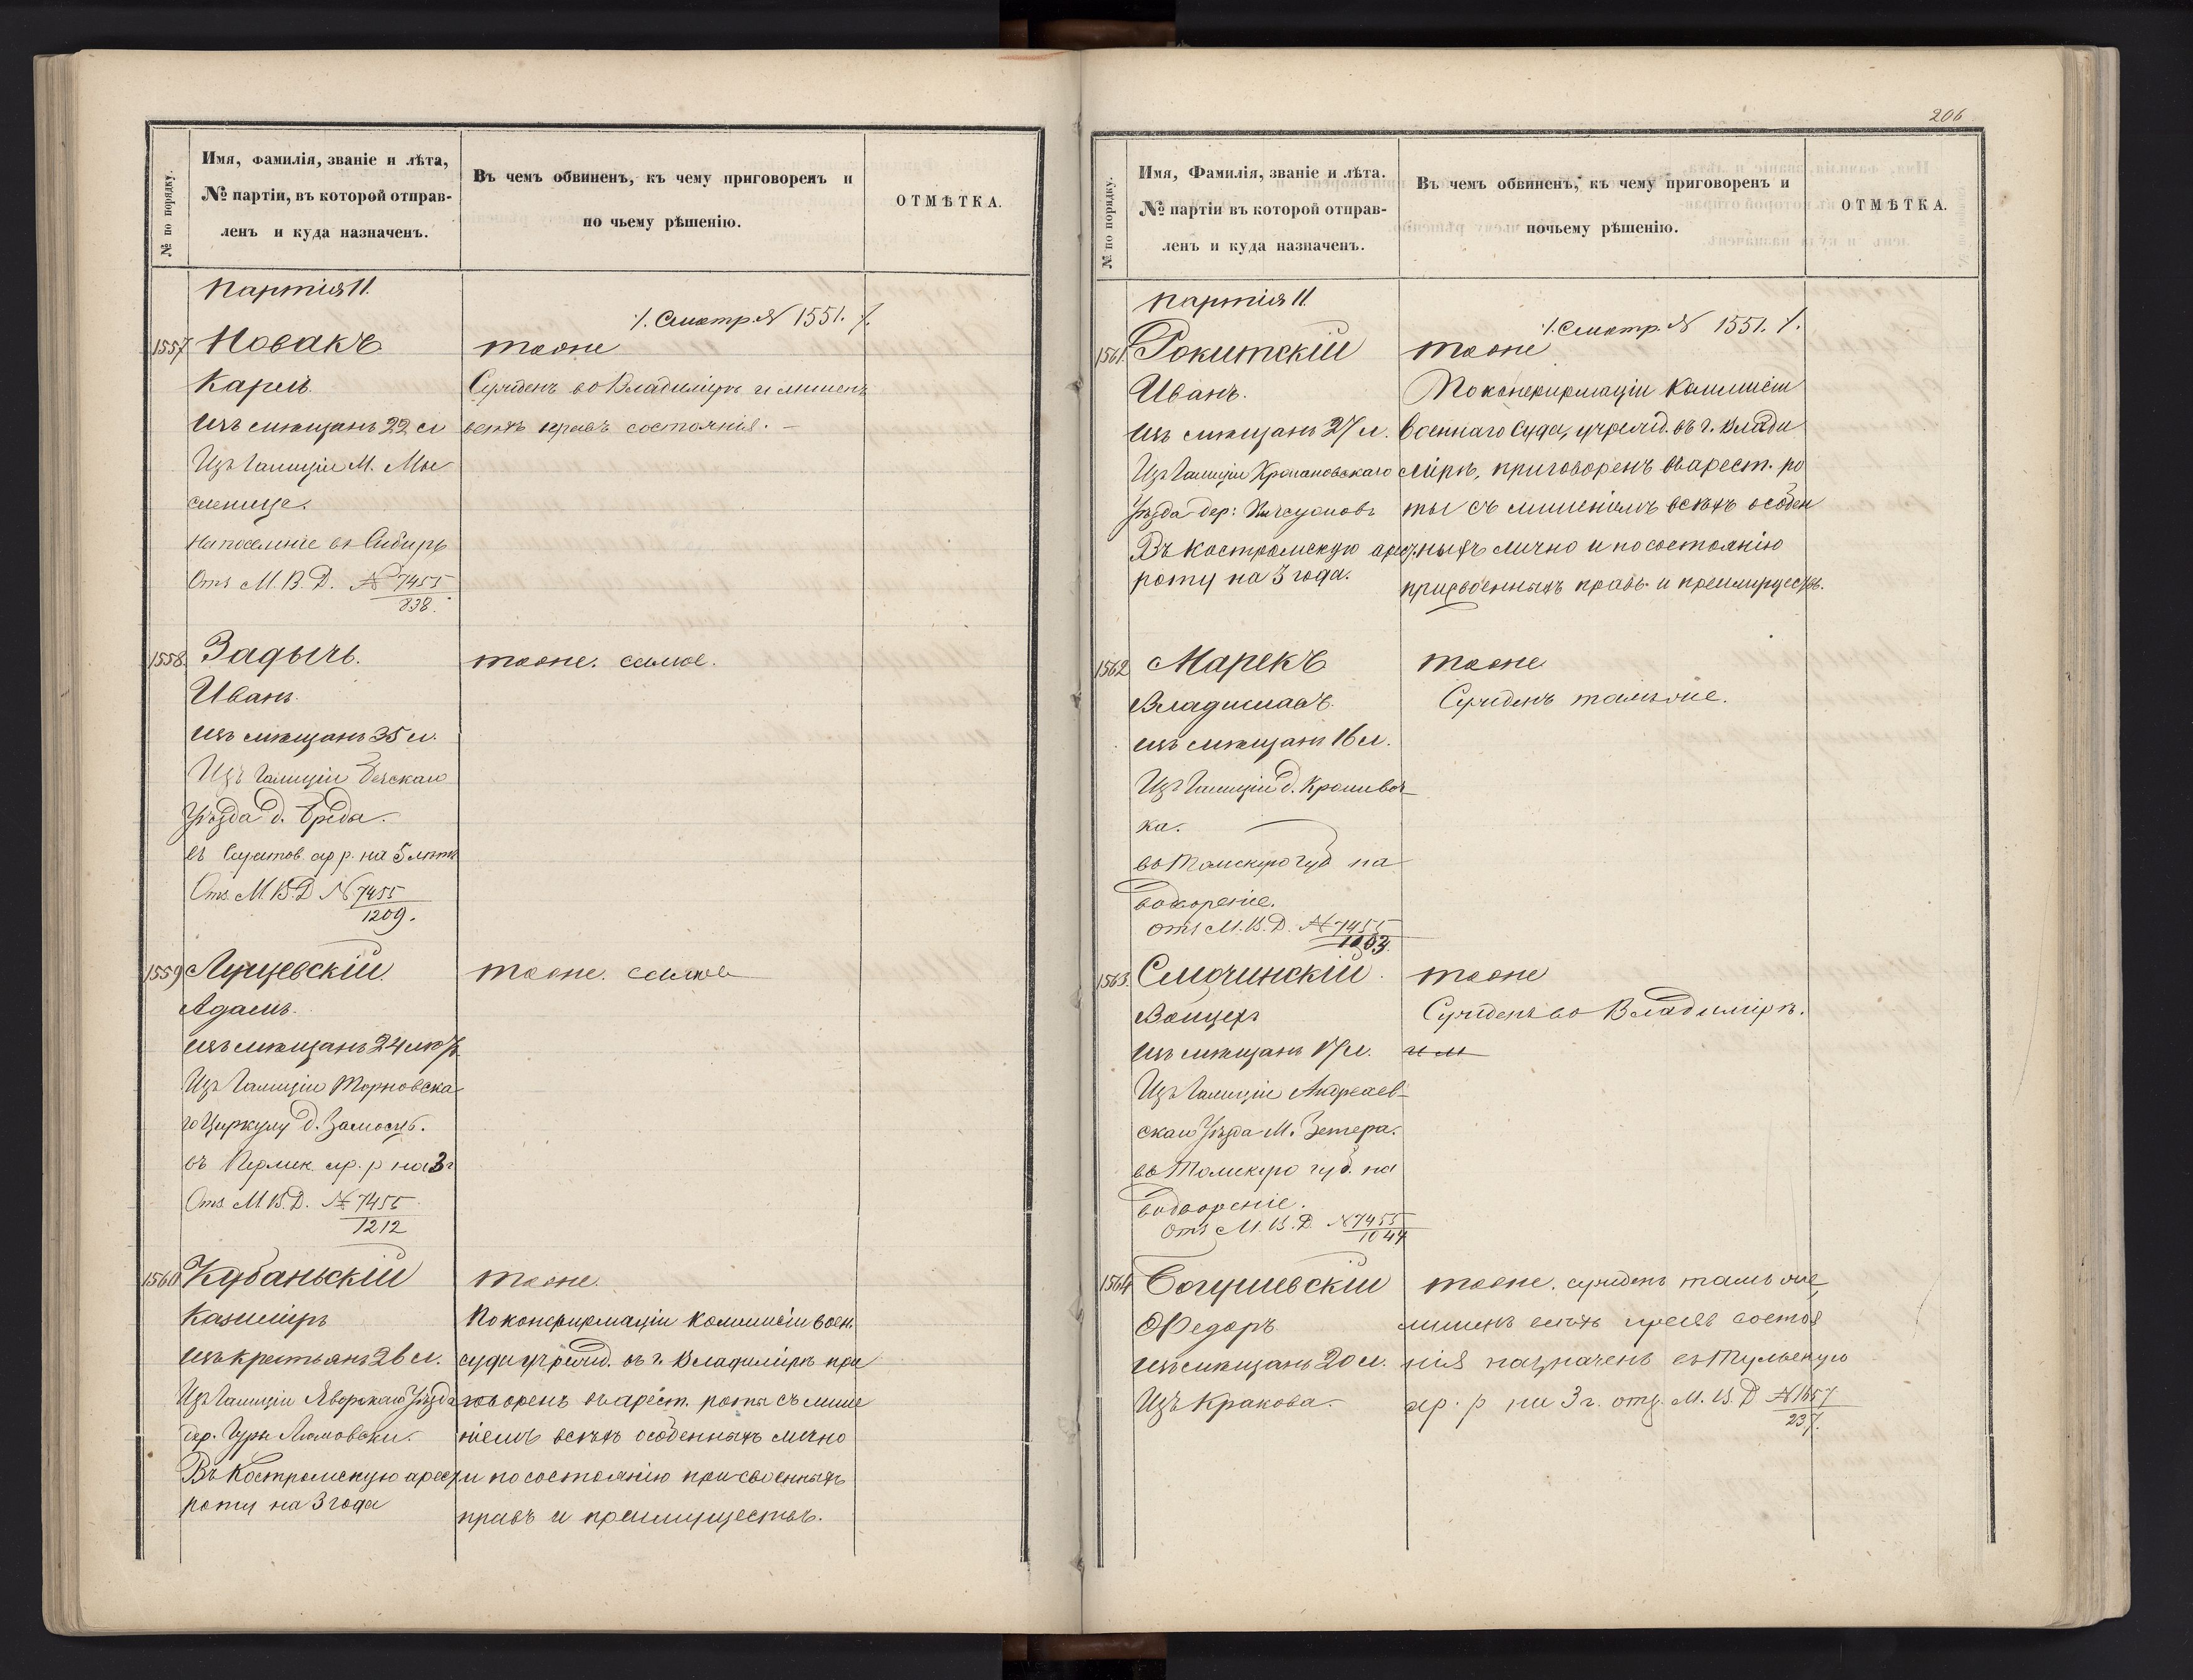 № по порядку.
Имя, фамилія, званіе и лѣта,
№ партіи, въ которой отправ-
ленъ и куда назначенъ.
Въ чемъ обвиненъ, къ чему приговоренъ и
по чьему рѣшенію.
ОТМѢТКА.
Партія 11.
1557 Новакъ
Карлъ.
изъ мѣщанъ 22 л
Изъ Галиціи М. Мы
сленице.
На поселеніе въ Сибирь
Отз М. В. Д. № 7455
838.
·/. Смотр. № 1551. /.
тоже
Сужденъ во Владимірѣ и лишенъ
всѣхъ правъ состоянія. –
1558. Задычь.
Иванъ.
изъ мѣщанъ 35 л.
Изъ Галиціи
Уѣзда д.
въ Саратов. ар р. на 5 лѣтъ
Отз. М. В. Д № 7455
1209.
тоже. самое.
1559 Лущевскій
Адамъ.
изъ мѣщанъ 24 лѣтъ
Изъ Галиціи Торновска
го Циркулу д. Замосць.
въ Пермск. ар. р на 3 г
Отз. М. В. Д. № 7455
1212
тоже. самое
1560 Кубаньскій
Казиміръ
изъ крестьянъ 26 л.
Изъ Галиціи Яворскаго Уѣзда
дер. Гуры
Въ Костромскую арест
роту на 3 года
тоже.
По конфирмаціи Коммисіи воен.
суда учрежд. въ г. Владимірѣ при
говоренъ въ арест. роты съ лише
ніемъ всѣхъ особенныхъ лично
и по состоянію присвоенныхъ
правъ и преимуществъ.
206
№ по порядку.
Имя, Фамилія, званіе и лѣта.
№ партіи въ которой отправ-
ленъ и куда назначенъ.
Въ чемъ обвиненъ, къ чему приговоренъ и
почьему рѣшенію.
ОТМѢТКА.
партія 11.
1561. Рокитскій
Иванъ.
изъ мѣщанъ 27 л.
Изъ Галиціи
Уѣзда дер:
Въ Костромскую арест
роту на 3 года.
·/. Смотр. № 1551. /.
тоже
По конфирмаціи Коммисіи
военнаго Суда, учрежд. въ г. Влади
мірѣ, приговоренъ въ арест. ро
ты съ лишеніемъ всѣхъ особен
ныхъ лично и по состоянію
присвоенныхъ правъ и преимуществъ.
1562 Марекъ
Владиславъ.
изъ мѣщанъ 16 л.
Изъ Галиціи д. Кроливоч
ка.
въ Томскую губ на
водвореніе.
отз М. В. Д. № 7455
тоже
Сужденъ тамъ же.
1563. Смочинскій
Войцехъ
изъ мѣщанъ 17 л.
Изъ Галиціи Андреев-
скаго Уѣзда М. Зетера.
въ Томскую губ. на
водвореніе.
Отз М. В. Д. № 7455
1044
тоже
Сужденъ во Владимірѣ.
и л
1564 Богушевскій
Федоръ
изъ мѣщанъ 20 л.
Изъ Кракова.
тоже. сужденъ тамъ же,
лишенъ всѣхъ правъ состоя
нія назначенъ въ Тульскую
ар. р на 3 г. отз. М. В. Д № 1657
237.